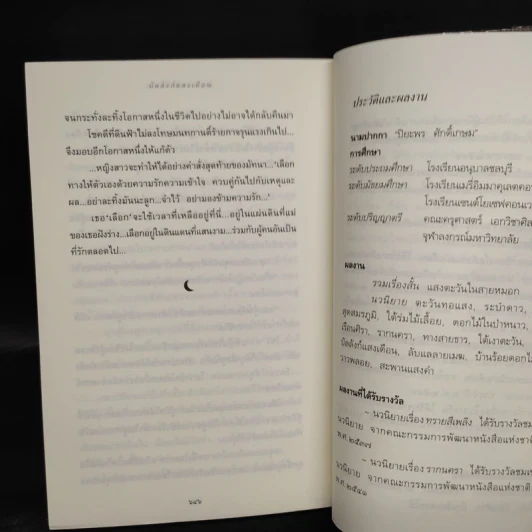 บัลลังก์แสงเดือน
จนกระทั่งละทิ้งโอกาสหนึ่งในชีวิตไปอย่างไม่อาจได้กลับคืนมา
โชคดีที่ดินฟ้าไม่ลงโทษมนทกานติ์ร้ายกาจรุนแรงเกินไป...
จึงมอบอีกโอกาสหนึ่งให้แก้ตัว
...หญิงสาวจะทำให้ได้อย่างคำสั่งสุดท้ายของมัทนา...‘เลือก
ทางให้ตัวเองด้วยความรักความเข้าใจ ควบคู่กันไปกับเหตุและ
ผล...อย่าละทิ้งมันนะลูก...จำไว้ อย่ามองข้ามความรัก’
เธอ‘เลือก’จะใช้เวลาที่เหลืออยู่ที่นี่...อยู่ในแผ่นดินที่แม่
ของเธอฝังร่าง...เลือกอยู่ในดินแดนที่แสนงาม...ร่วมกับผู้คนอันเป็น
ที่รักตลอดไป...
๖๔๖
ประวัติและผลงาน
นามปากกา “ปิยะพร ศักดิ์เกษม”
การศึกษา
ระดับประถมศึกษา โรงเรียนอนุบาลชลบุรี
ระดับมัธยมศึกษา โรงเรียนเมรี่อิมมาคุเลตคอน
โรงเรียนเซนต์โยเซฟคอนเว
ระดับปริญญาตรี คณะครุศาสตร์ เอกวิชาศิล
จุฬาลงกรณ์มหาวิทยาลัย
ผลงาน
รวมเรื่องสั้น แสงตะวันในสายหมอก
นวนิยาย ตะวันทอแสง, ระบำดาว,
สุดสมรภูมิ, ใต้ร่มไม้เลื้อย, ดอกไม้ในป่าหนาว,
เรือนศิรา, รากนครา, ทางสายธาร, ใต้เงาตะวัน,
บัลลังก์แสงเดือน, ลับแลลายเมฆ, บ้านร้อยดอกไม้
วาวพลอย, สะพานแสงคำ
ผลงานที่ได้รับรางวัล
~ นวนิยายเรื่อง ทรายสีเพลิง ได้รับรางวัลชม
นวนิยาย จากคณะกรรมการพัฒนาหนังสือแห่งชาติ
พ.ศ.๒๕๓๗
~ นวนิยายเรื่อง รากนครา ได้รับรางวัลชม
นวนิยาย จากคณะกรรมการพัฒนาหนังสือแห่งชาติ
พ.ศ.๒๕๔๑